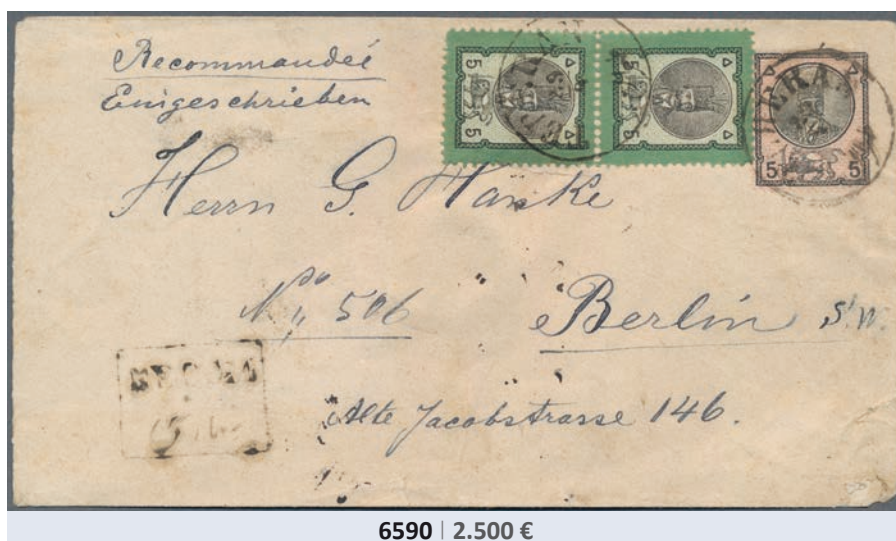 Recommandeé
Eingeschrieben
5 5
5 5
5 5
TEHERAN
Herrn G. Hanke
No 506
Berlin S.W.
Alte Jacobstrasse 146.
6590 | 2.500 €